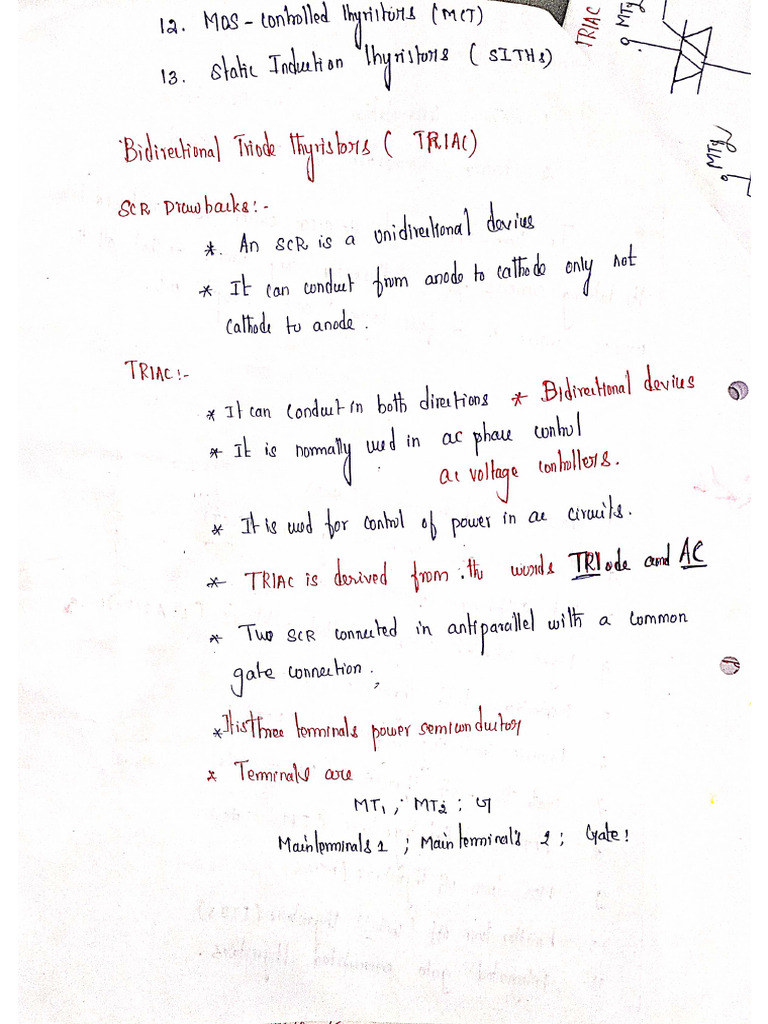 12. MOS - Controlled Thyristors (MCT)
13. Static Induction Thyristors ( SITHs)
TRIAC
MT2
g
MT2
g
Bidirectional Triode Thyristors ( TRIAC)
SCR Drawbacks:-
* An SCR is a unidirectional devices
* It can conduct from anode to cathode only not
cathode to anode.
TRIAC:-
* It can conduct in both directions * Bidirectional devices
* It is normally used in ac phase control
ac voltage controllers.
* It is used for control of power in ac circuits.
* TRIAC is derived from the words TRIode and AC
* Two SCR connected in antiparallel with a common
gate connection.
* It is three terminals power semiconductor
* Terminals are
MT1, MT2 ; G
Main terminals 1 ; Main terminal's 2 ; Gate!